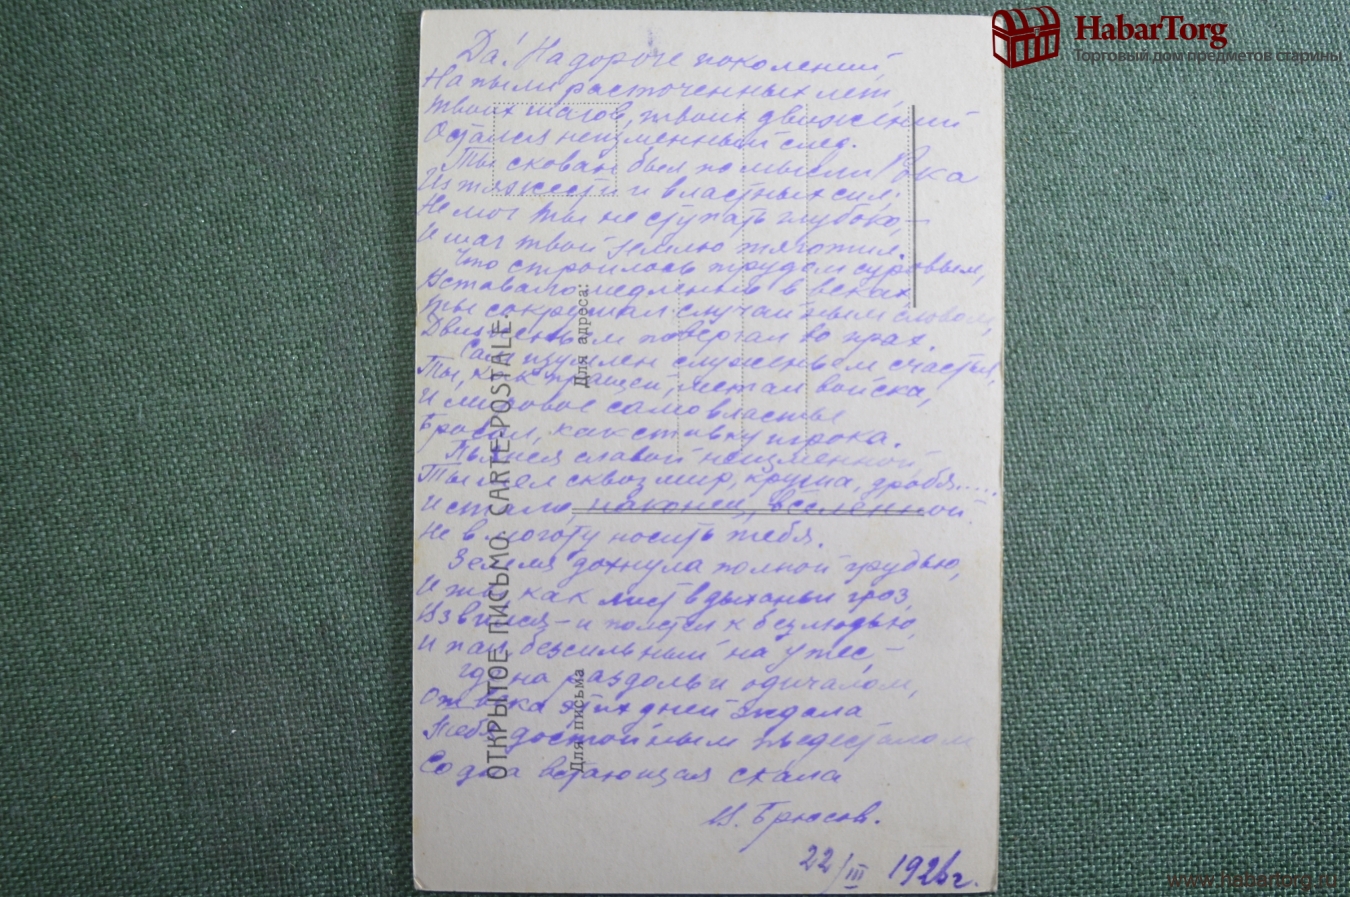 HabarTorg
Торговый дом предметов старины
Да! На дороге поколений,
На пыли расточенных лет,
Твоих шагов, твоих движений
Остался неизменный след.
Ты скован был по мысли Рока
Из тяжести и властных сил:
Не мог ты не ступать глубоко, —
И шаг твой землю тяготил.
Что строилось трудом суровым,
Вставало медленно в веках,
Ты сокрушал случайным словом,
Движеньем повергал во прах.
Сам изумлен служеньем счастья,
Ты, как пращей, метал войска,
И мировое самовластье
Бросал, как ставку игрока.
Пьянися славой неизменной,
Ты шел сквозь мир, круша, дробя.....
И стало, наконец, вселенной
Не в моготу носить тебя.
Земля дохнула полной грудью,
И ты, как лист в дыханьи гроз,
Взвился — и полетел к безлюдью,
И пал бессильный на утес, —
Где на раздольи одичалом,
От века этих дней ждала
Тебя достойным пьедесталом
Со дна встающая скала
В. Брюсов.
22/III 1926 г.
ОТКРЫТОЕ ПИСЬМО. CARTE-POSTALE.
Для адреса:
Для письма
www.habartorg.ru